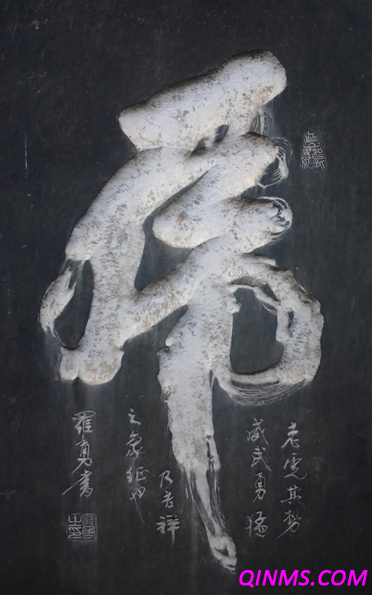 虎
老虎其势
威武勇猛
乃吉祥
之象征也
罗勇书
QINMS.COM